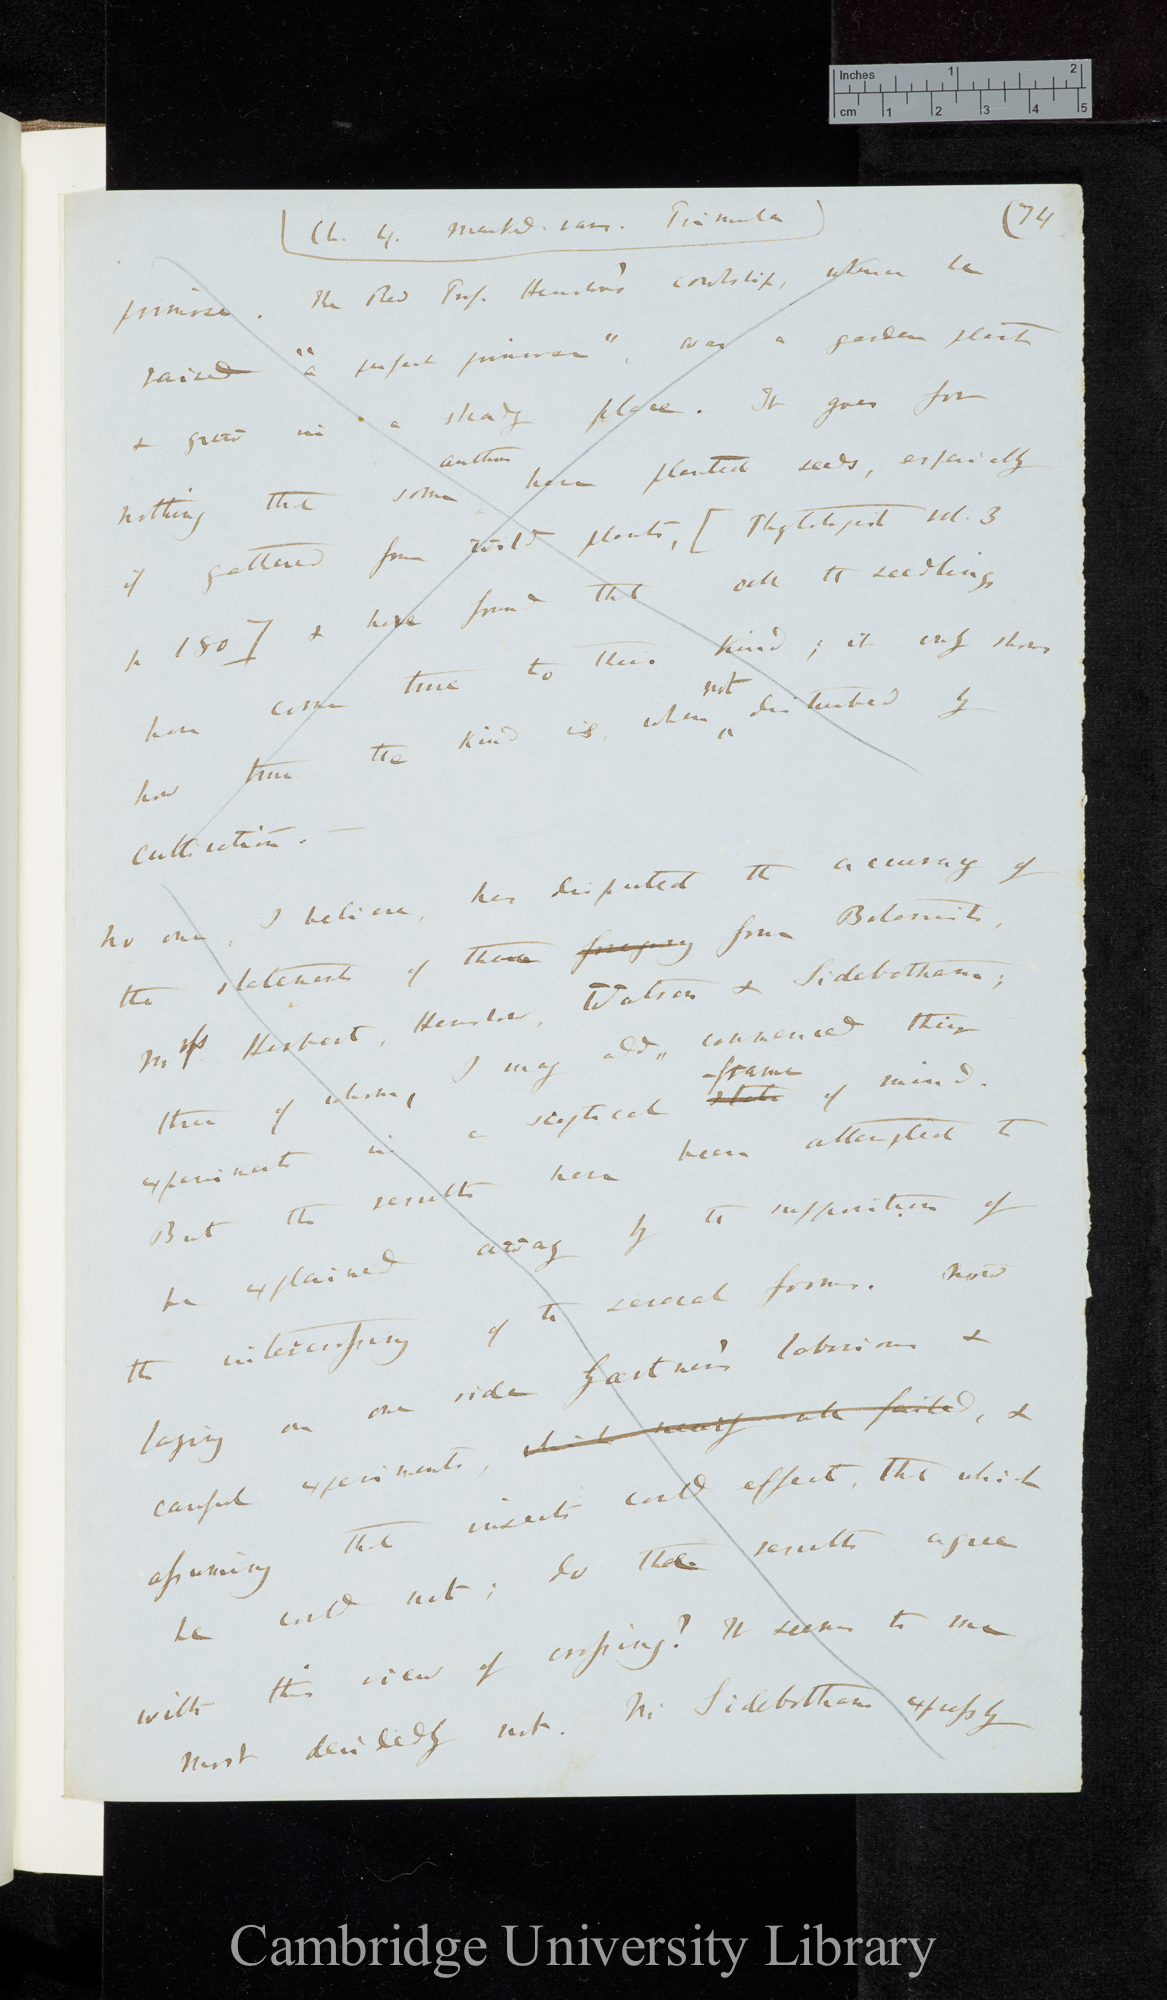 Inches 1 2
cm 1 2 3 4 5
(Ch. 4. Marked. vars. Primula) (74
primrose. The Red Prof. Henslow's cowslip, whence he
raised "a perfect primrose", was a garden plant
& grew in a shady place. It goes for
authors
nothing that some have planted seeds, especially
if gathered from wild plants, [Phytologist vol. 3
p 180] & have found that all the seedlings
have come true to their kind; it only shows
not
how true the kind is, when disturbed by
cultivation. —
No one, I believe, has disputed the accuracy of
the statements of these foregoing four Botanists,
Herbert, Henslow, Watson & Sidebotham;
three of whom, I may add, commenced their
frame
experiments in a sceptical state of mind.
But the results have been attempted to
be explained away by the supposition of
the intercrossing of the several forms. Now
laying on one side Gærtner's laborious &
careful experiments, which nearly all failed, &
assuming that insects could effect, that which
he could not; do the results agree
with this view of crossing? It seems to me
most decidedly not. Mr Sidebotham expressly
Cambridge University Library